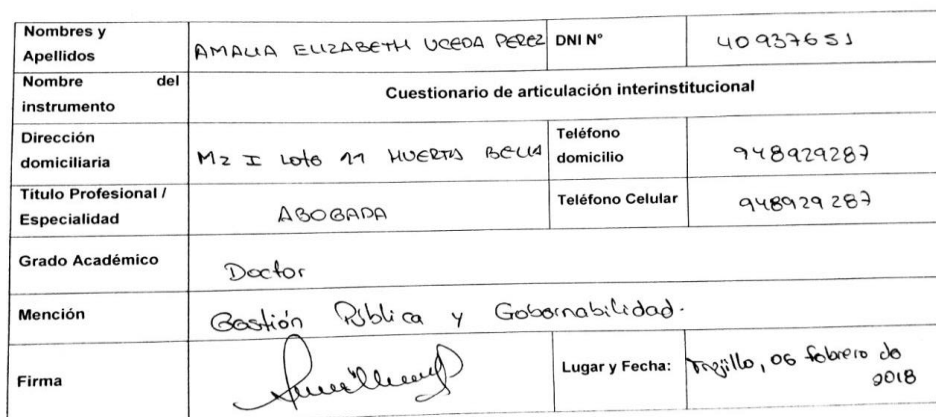 Nombres y
Apellidos
AMALIA ELIZABETH UCEDA PEREZ
DNI N°
40937651
Nombre del
instrumento
Cuestionario de articulación interinstitucional
Dirección
domiciliaria
Mz I Lote 11 HUERTA BELLA
Teléfono
domicilio
948929287
Titulo Profesional /
Especialidad
ABOGADA
Teléfono Celular
948929287
Grado Académico
Doctor
Mención
Gestión Pública y Gobernabilidad.
Firma
Lugar y Fecha:
Trujillo, 06 febrero de
2018